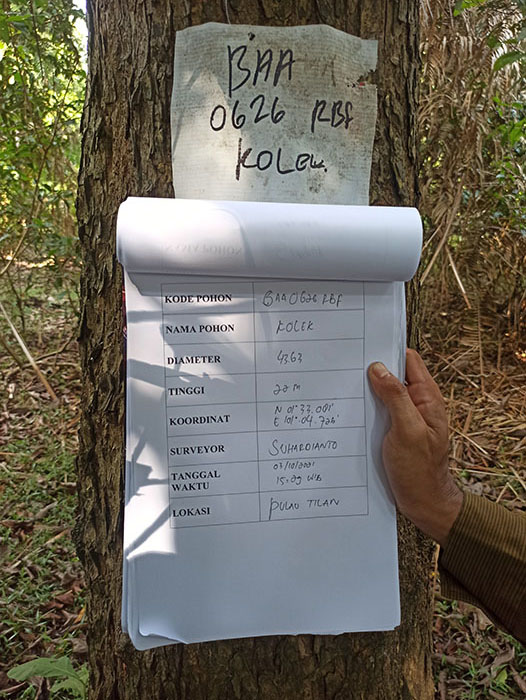 BAA
0626 RBF
KOLEK
KODE POHON BAA 0626 RBF
NAMA POHON KOLEK
DIAMETER 43,63
TINGGI 22 M
KOORDINAT N 01° 33. 001'
E 101°. 04. 724'
SURVEYOR SUHARDIANTO
TANGGAL 03/10/2021
WAKTU 15.09 WIB
LOKASI PULAU TILAN